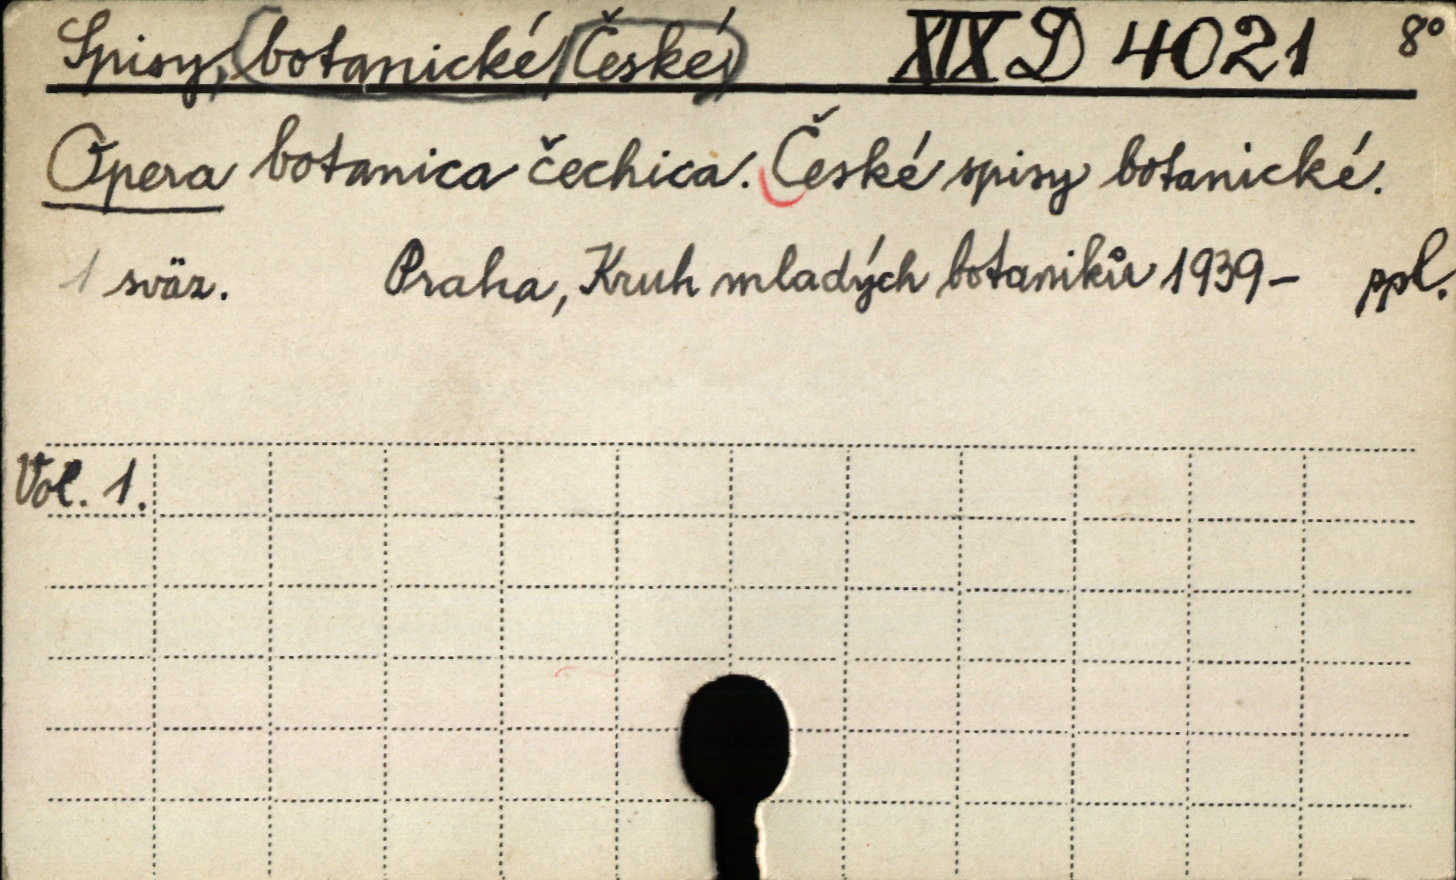 Spisy, botanické České, XIX D 4021 8°
Opera botanica čechica. České spisy botanické.
1 sväz. Praha, Kruh mladých botaniků 1939- ppl.
Vol. 1.